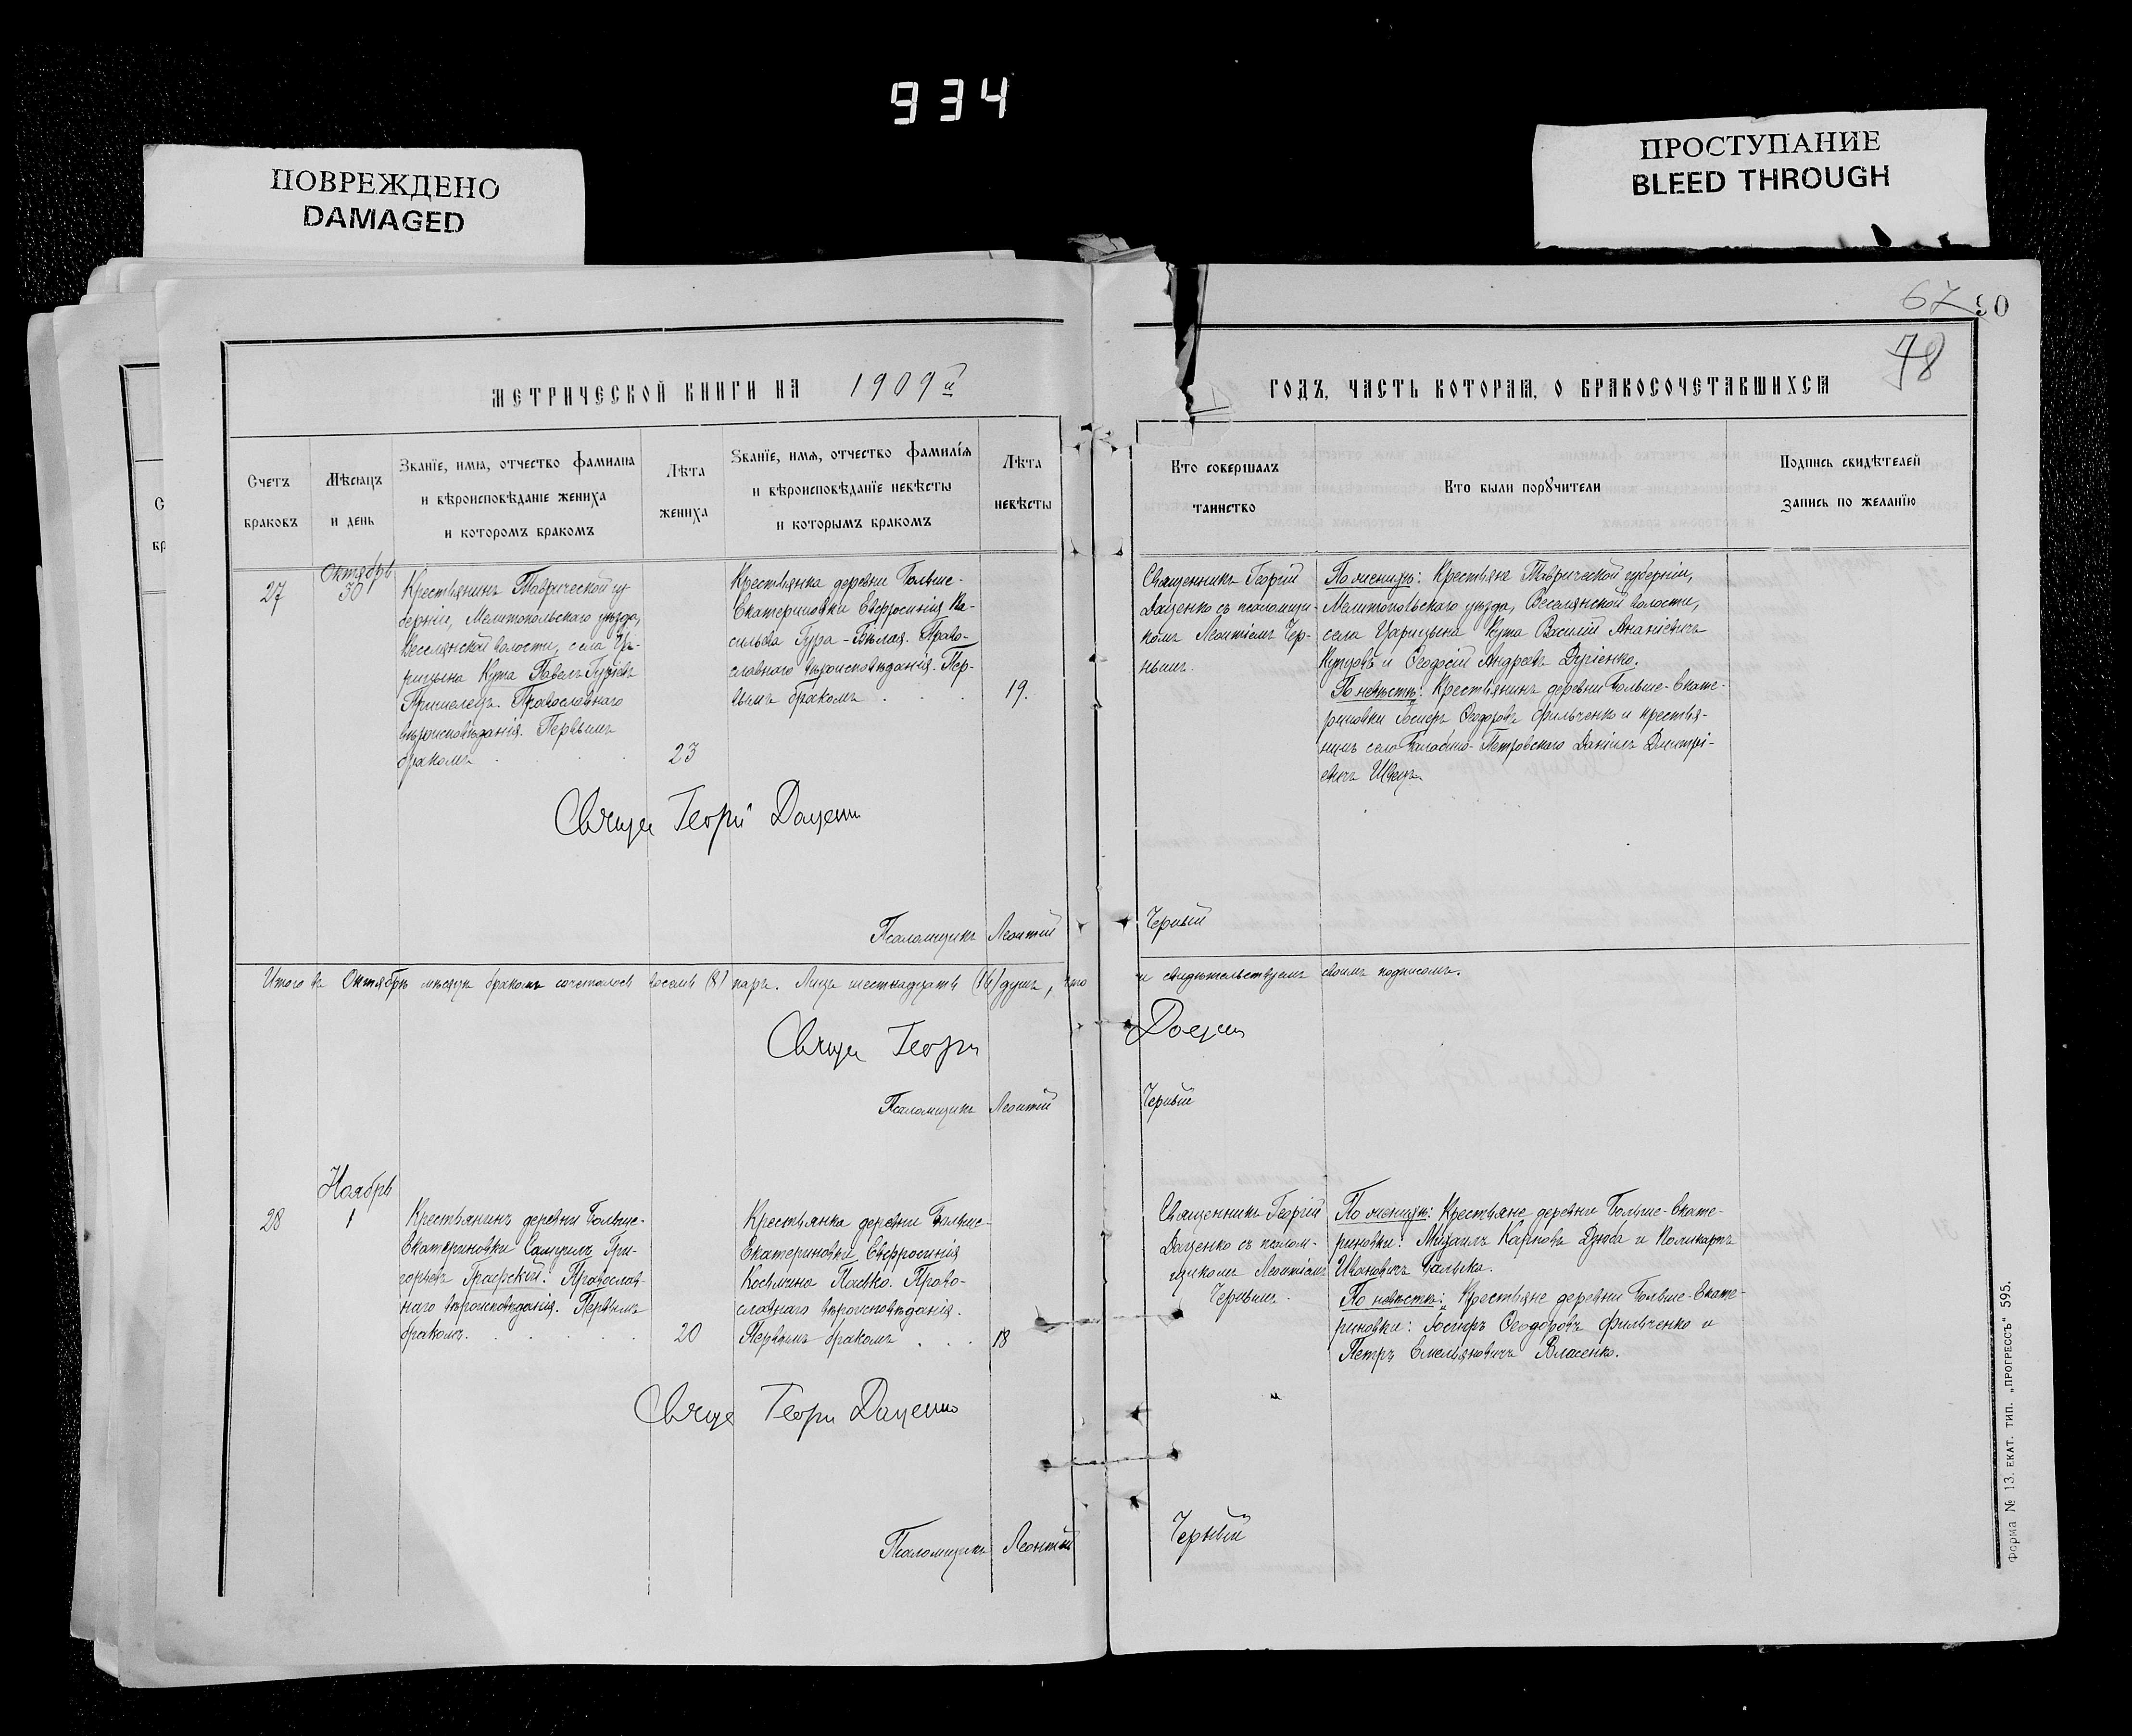 934
ПОВРЕЖДЕНО
DAMAGED
ПРОСТУПАНИЕ
BLEED THROUGH
67
90
78
МЕТРИЧЕСКОЙ КНИГИ НА 1909й
ГОДЪ, ЧАСТЬ КОТОРАЯ, О БРАКОСОЧЕТАВШИХСЯ
Счетъ
браковъ
Мѣсяцъ
и день
Званїе, имя, отчество фамилия
и вѣроисповѣданїе жениха
и которомъ бракомъ
Лѣта
жениха
Званїе, имя, отчество фамилїя
и вѣроисповѣданїе невѣсты
и которымъ бракомъ
Лѣта
невѣсты
Кто совершалъ
таинство
Кто были порꙋчители
Подпись свидѣтелей
запись по желанїю
27
Октябрь
30
Крестьянинъ Таврической гу-
берніи, Мелитопольскаго уѣзда,
Веселянской волости, села Ца-
рицына Кута Павелъ Гуріевъ
Пришелецъ. Православнаго
вѣроисповѣданія. Первымъ
бракомъ
23
Крестьянка деревни Больше-
Екатериновки Евфросинія Ва-
сильева Гура-Бѣлая. Право-
славнаго вѣроисповѣданія. Пер-
вымъ бракомъ
19.
Священникъ Георгій
Даценко съ псаломщи-
комъ Леонтіемъ Чер-
нымъ.
По женихѣ: Крестьяне Таврической губерніи,
Мелитопольскаго уѣзда, Веселянской волости,
села Царицына Кута Василій Ананіевичъ
и Ѳеодосій Андреевъ
По невѣстѣ: Крестьянинъ деревни Больше-Екате-
риновки Іосифъ Ѳеодоровъ Фильченко и крестья-
нинъ села Балабино-Петровскаго Даніилъ Дмитрі-
евичъ Швецъ.
Священ Георгій Даценко
Псаломщикъ Леонтій Черный
Итого въ Октябрѣ мѣсяцѣ бракомъ сочеталось восемь (8) паръ. Лицъ шестнадцать (16) душъ, что и свидѣтельствуемъ своимъ подписомъ.
Священ Георгій Даценко
Псаломщикъ Леонтій Черный
28
Ноябрь
1
Крестьянинъ деревни Больше-
Екатериновки Самуилъ Гри-
горьевъ Граерскій. Православ-
наго вѣроисповѣданія. Первымъ
бракомъ.
20
Крестьянка деревни Больше-
Екатериновки Евфросинія
Косьмина Павко. Право-
славнаго вѣроисповѣданія.
Первымъ бракомъ
18
Священникъ Георгій
Даценко съ псалом-
щикомъ Леонтіемъ
Чернымъ.
По женихѣ: Крестьяне деревни Больше-Екате-
риновки: Михаилъ Карповъ Дзюба и Поликарпъ
Ивановичъ Галыка.
По невѣстѣ: Крестьяне деревни Больше-Екате-
риновки: Іосифъ Ѳеодоровъ Фильченко и
Петръ Емельяновичъ Власенко.
Священ Георгій Даценко
Псаломщикъ Леонтій Черный
Форма № 13. ЕКАТ. ТИП. „ПРОГРЕССЪ" 595.